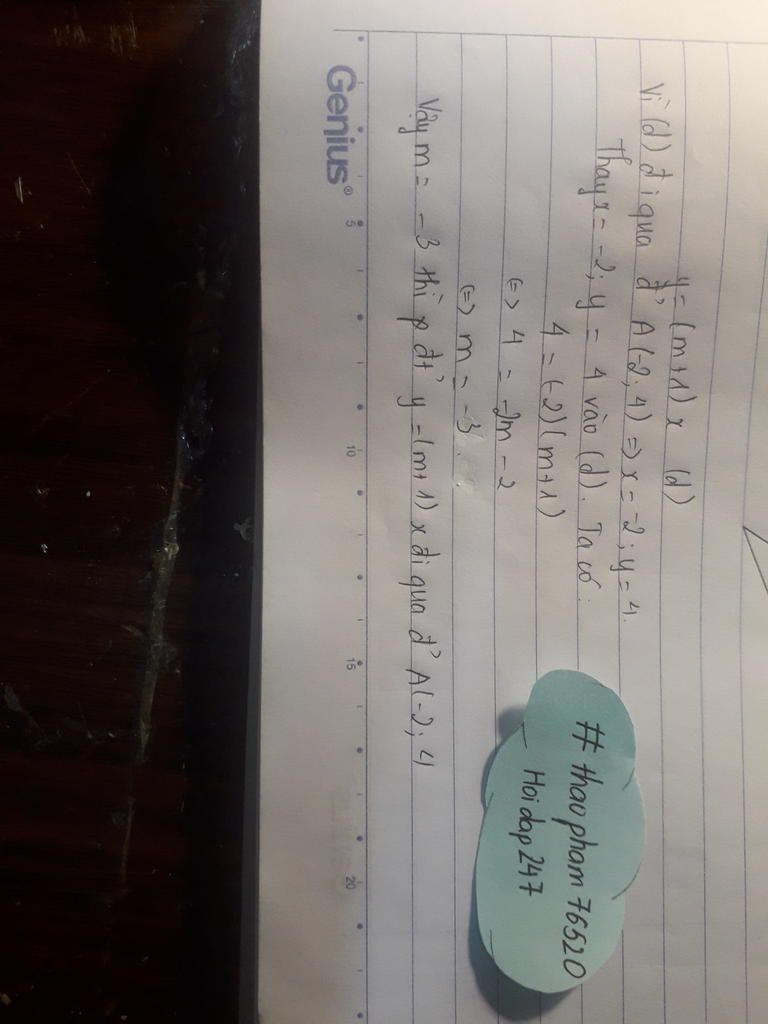 y = (m+1) x (d)
Vì (d) đi qua đ' A(-2; 4) => x = -2; y = 4.
Thay x = -2; y = 4 vào (d). Ta có:
4 = (-2)(m+1)
<=> 4 = -2m - 2
<=> m = -3.
Vậy m = -3 thì p đt' y = (m+1) x đi qua đ' A(-2; 4
# thaopham76520
Hoidap247
Genius®
5
10
15
20